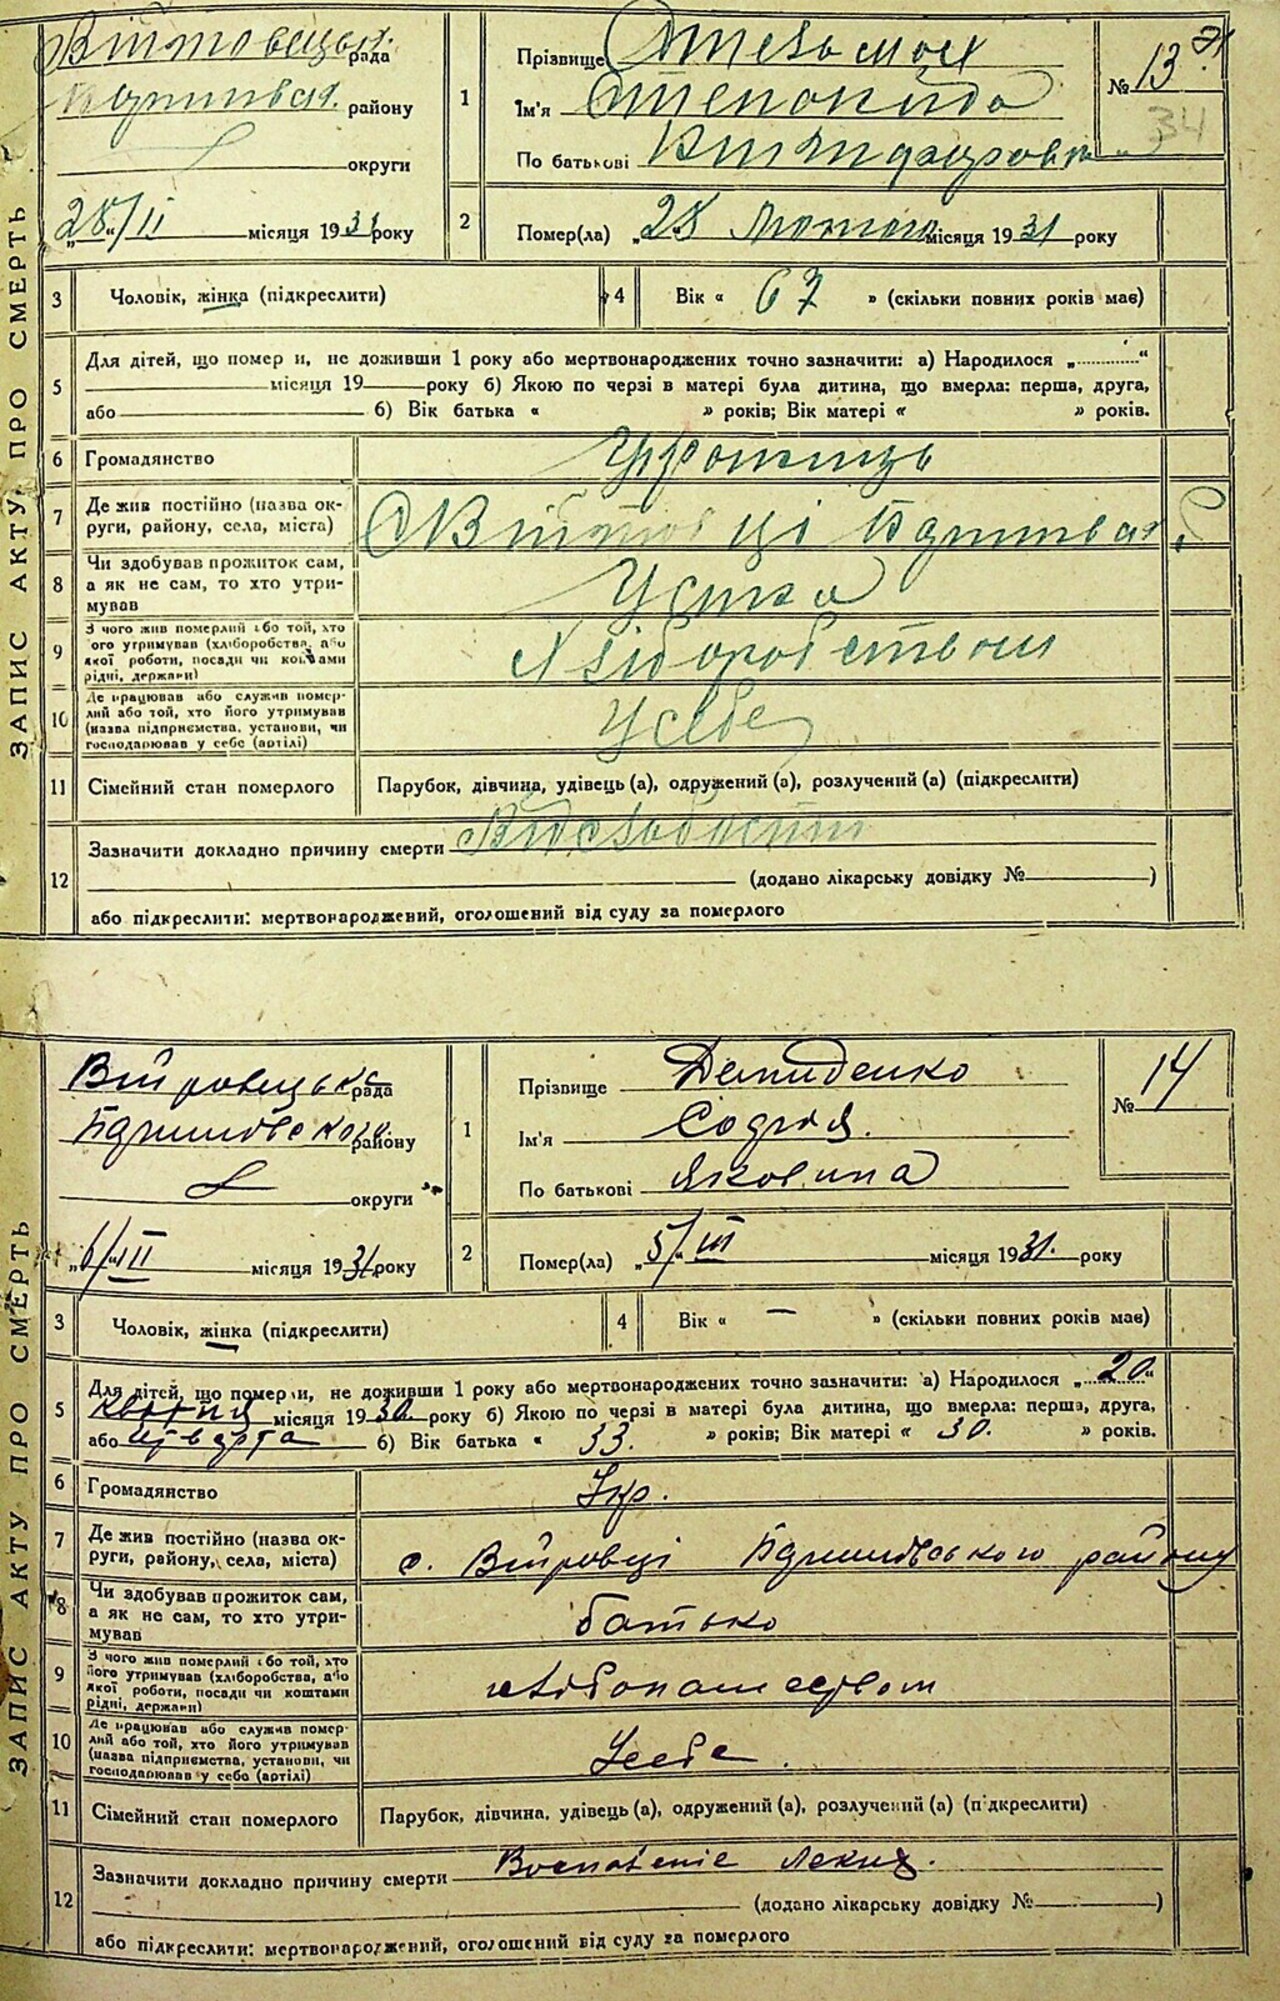 ЗАПИС АКТУ ПРО СМЕРТЬ
рада
району
округи
„28“/II місяця 1931 року
1
Прізвище
Ім'я
По батькові
№ 13
34
2
Помер(ла) „28 Лютого місяця 1931 року
3
Чоловік, жінка (підкреслити)
4
Вік « 67 » (скільки повних років має)
5
Для дітей, що померли, не доживши 1 року або мертвонароджених точно зазначити: а) Народилося „..........“
місяця 19 року б) Якою по черзі в матері була дитина, що вмерла: перша, друга,
або б) Вік батька « » років; Вік матері « » років.
6
Громадянство
7
Де жив постійно (назва ок-
руги, району, села, міста)
8
Чи здобував прожиток сам,
а як не сам, то хто утри-
мував
9
З чого жив померлий або той, хто
його утримував (хліборобства, або
якої роботи, посади чи коштами
рідні, держави)
Хліборобством
10
Де працював або служив помер-
лий або той, хто його утримував
(назва підприємства, установи, чи
господарював у себе (артілі)
У себе
11
Сімейний стан померлого
Парубок, дівчина, удівець (а), одружений (а), розлучений (а) (підкреслити)
12
Зазначити докладно причину смерти Від слабости
(додано лікарську довідку № )
або підкреслити: мертвонароджений, оголошений від суду за померлого
ЗАПИС АКТУ ПРО СМЕРТЬ
рада
району
округи
„6“/III місяця 1931 року
1
Прізвище Демиденко
Ім'я Софія.
По батькові Яковина
№ 14
2
Помер(ла) „5“/III місяця 1931. року
3
Чоловік, жінка (підкреслити)
4
Вік « — » (скільки повних років має)
5
Для дітей, що померли, не доживши 1 року або мертвонароджених точно зазначити: а) Народилося „20“
квітня місяця 1930. року б) Якою по черзі в матері була дитина, що вмерла: перша, друга,
або б) Вік батька « 33. » років; Вік матері « 30. » років.
6
Громадянство
Укр.
7
Де жив постійно (назва ок-
руги, району, села, міста)
с. району
8
Чи здобував прожиток сам,
а як не сам, то хто утри-
мував
батько
9
З чого жив померлий або той, хто
його утримував (хліборобства, або
якої роботи, посади чи коштами
рідні, держави)
10
Де працював або служив помер-
лий або той, хто його утримував
(назва підприємства, установи, чи
господарював у себе (артілі)
У себе.
11
Сімейний стан померлого
Парубок, дівчина, удівець (а), одружений (а), розлучений (а) (підкреслити)
12
Зазначити докладно причину смерти
(додано лікарську довідку № )
або підкреслити: мертвонароджений, оголошений від суду за померлого